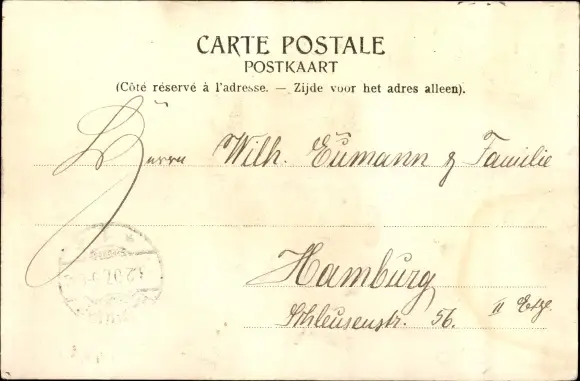 CARTE POSTALE
POSTKAART
(Côté réservé à l'adresse. — Zijde voor het adres alleen).
Herrn Wilh. Eumann & Familie
Hamburg
Schleusenstr. 56. II Etge.